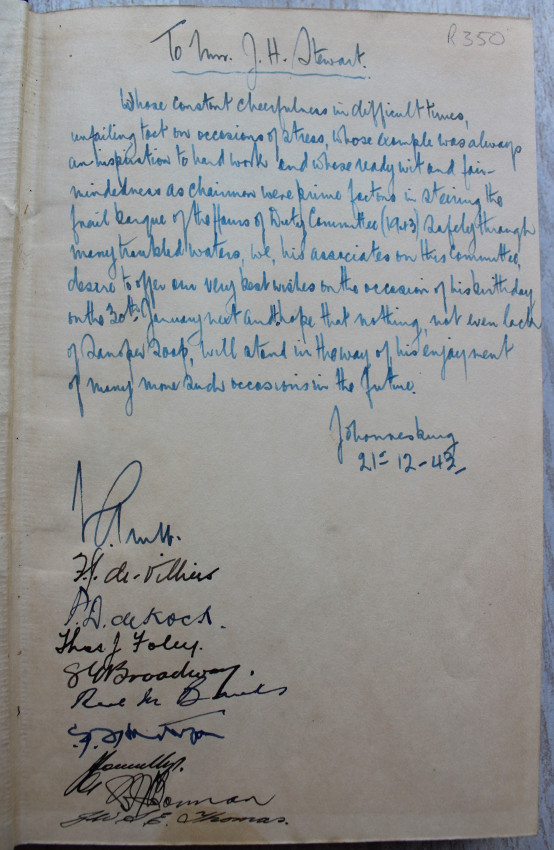 R350
To Mr. J. H. Stewart.
Whose constant cheerfulness in difficult times,
unfailing tact on occasions of stress, whose example was always
an inspiration to hard work and whose ready wit and fair-
mindedness as chairman were prime factors in steering the
frail barque of the Hours of Duty Committee (1943) safely through
many troubled waters, we, his associates on this Committee,
desire to offer our very best wishes on the occasion of his birthday
on the 30th January next and hope that nothing, not even lack
of Soap, will stand in the way of his enjoyment
of many more such occasions in the future.
Johannesburg
21-12-43
F.J. de-Villiers
P.D. de Kock.
Thos J Foley.
Broadway.
Bowman
Thomas.